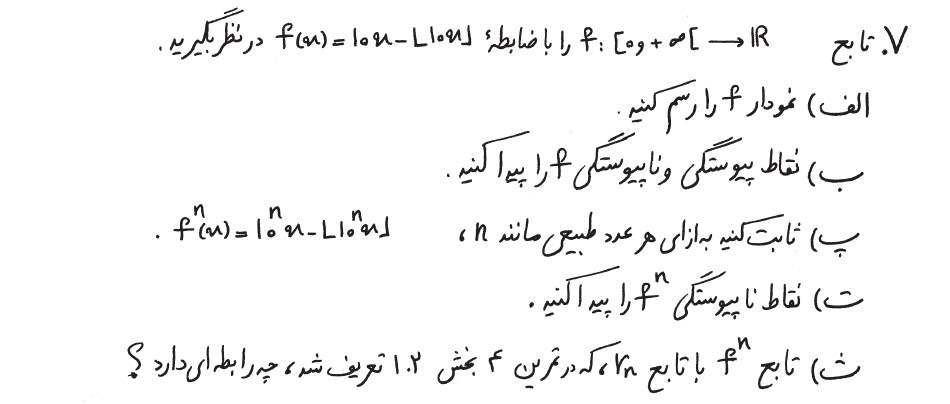 ۷. تابع f: [۰و+∞[ ⟶ ℝ را با ضابطهٔ f(x)=۱۰x-⌊۱۰x⌋ در نظر بگیرید.
الف) نمودار f را رسم کنید.
ب) نقاط پیوستگی و ناپیوستگی f را پیدا کنید.
پ) ثابت کنید به ازای هر عدد طبیعی مانند n، fⁿ(x)=۱۰ⁿx-⌊۱۰ⁿx⌋ .
ت) نقاط ناپیوستگی fⁿ را پیدا کنید.
ث) تابع fⁿ با تابع rₙ، که در تمرین ۴ بخش ۱.۲ تعریف شد، چه رابطه‌ای دارد؟